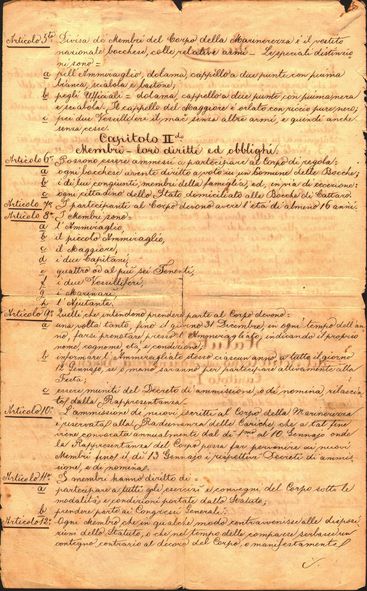 Articolo 5to Divisa de Membri del Corpo della Marinerezza è il vestito
nazionale bocchese, colle relative armi. Le speciali distinzio
ni sono=
a pell Ammiraglio, dolama, cappello a due punte con piuma
bianca, sciabola e bastone;
b pegli Uffiziali= dolama, cappello a due punte con piuma nera
e sciabola. Il cappello del Maggiore è orlato con riccio pure nero;
c pei due Vessilliferi il senza altre armi, e quindi anche
senza
Capitolo II do
Membri= loro diritti ed obblighi.
Articolo 6to Possono essere ammessi a partecipare al corpo di regola:
a ogni bocchese avente diritto a voto in un Comune delle Bocche;
b i di lui congiunti, membri della famiglia, ed, in via di eccezione:
c ogni cittadino dello Stato domiciliato alle Bocche di Cattaro.
Articolo 7o I partecipanti al Corpo devono aver l'età di almeno 16 anni.
Articolo 8o I Membri sono:
a l'Ammiraglio,
b il piccolo Ammiraglio,
c il Maggiore,
d i due Capitani,
e quattro od al più sei Tenenti,
f i due Vessilliferi,
g i Marinari,
h l'Ajutante.
Articolo 9o Quelli che intendono prender parte al Corpo devono:
a una volta tanto, fino il giorno 31 Dicembre, in ogni tempo dell'an
no, farsi prenotare presso l'Ammiragliato, indicando il proprio
nome, cognome, età, e condizione;
b informare l'Ammiragliato stesso ciascun anno, a tutto il giorno
12 Gennajo, se o meno saranno per partecipare attivamente alla
Festa;
c essere muniti del Decreto di ammissione, o di nomina, rilascia=
to dalla Rappresentanza.
Articolo 10o L'ammissione dei nuovi iscritti al Corpo della Marinerezza
è riservata alla Radunanza delle Cariche, che a tal fine
viene convocata annualmente dal dì 1mo al 10 Gennajo onde
la Rappresentanza del Corpo possa far pervenire ai nuovi
Membri fino il dì 13 Gennajo i rispettivi Decreti di ammis=
sione, o di nomina.
Articolo 11o I membri hanno diritto di=
a partecipare a tutti gli esercizi e convegni del Corpo sotto le
modalità e condizioni portate dallo Statuto,
b prender parte ai Congressi Generali.
Articolo 12o Ogni membro che in qualche modo contravvenisse alle disposi
zioni dello Statuto, o che nel tempo delle comparse serbasse un
contegno contrario al decoro del Corpo, o manifestamente